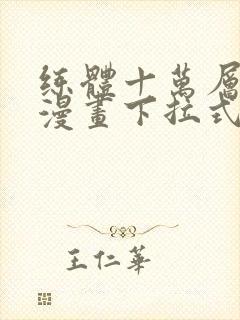 練體十萬層
漫畫下拉式
王仁華